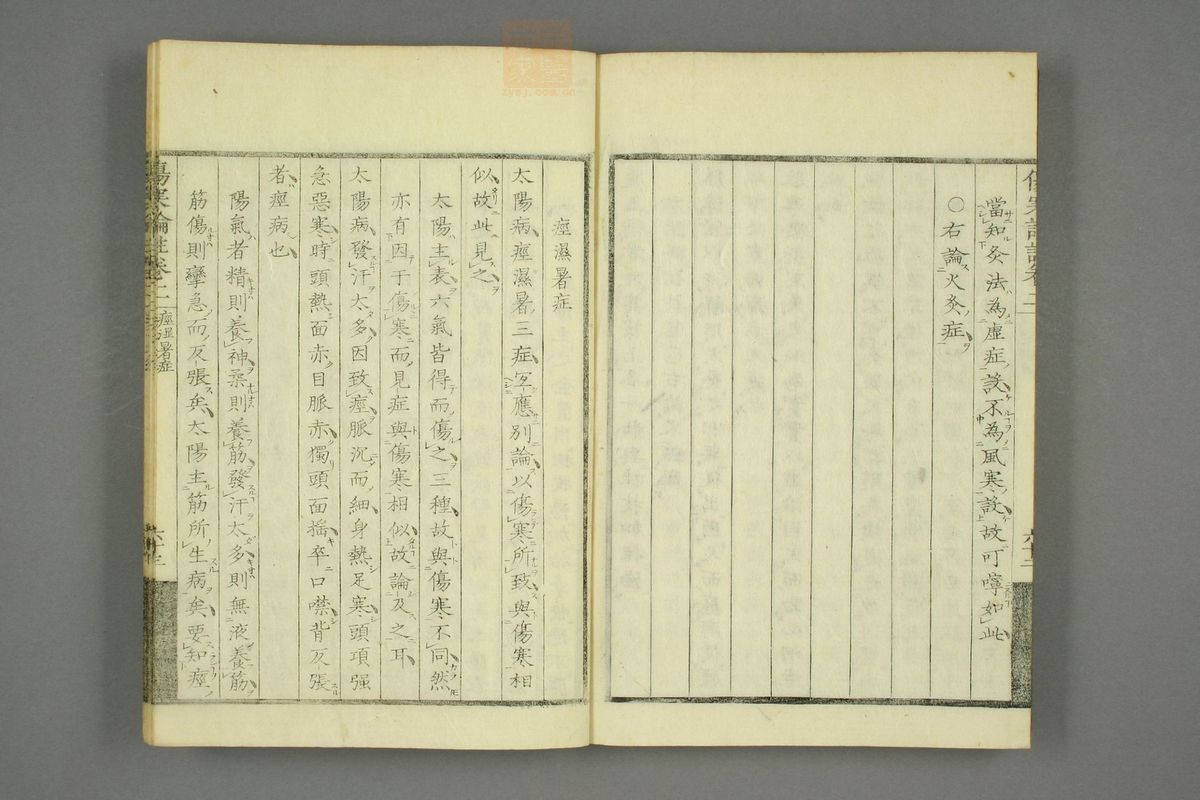 當知灸法為虛症設不為風寒設故叮嚀如此
○右論火灸症
痙濕暑症
太陽病痙濕暑三症𡨋應別論以傷寒所致與傷寒相
似故此見之
太陽主表六氣皆得而傷之三種故與傷寒不同然
亦有因于傷寒而見症與傷寒相似故論及之耳
太陽病發汗太多因致痙脈沉而細身熱足寒頭項强
急惡寒時頭熱面赤目脈赤獨頭面搖卒口噤背反張
者痙病也
陽氣者精則養神柔則養筋發汗太多則無液養筋
筋傷則攣急而反張矣太陽主筋所生病矣要知痙
傷寒論註卷二
痙濕暑症